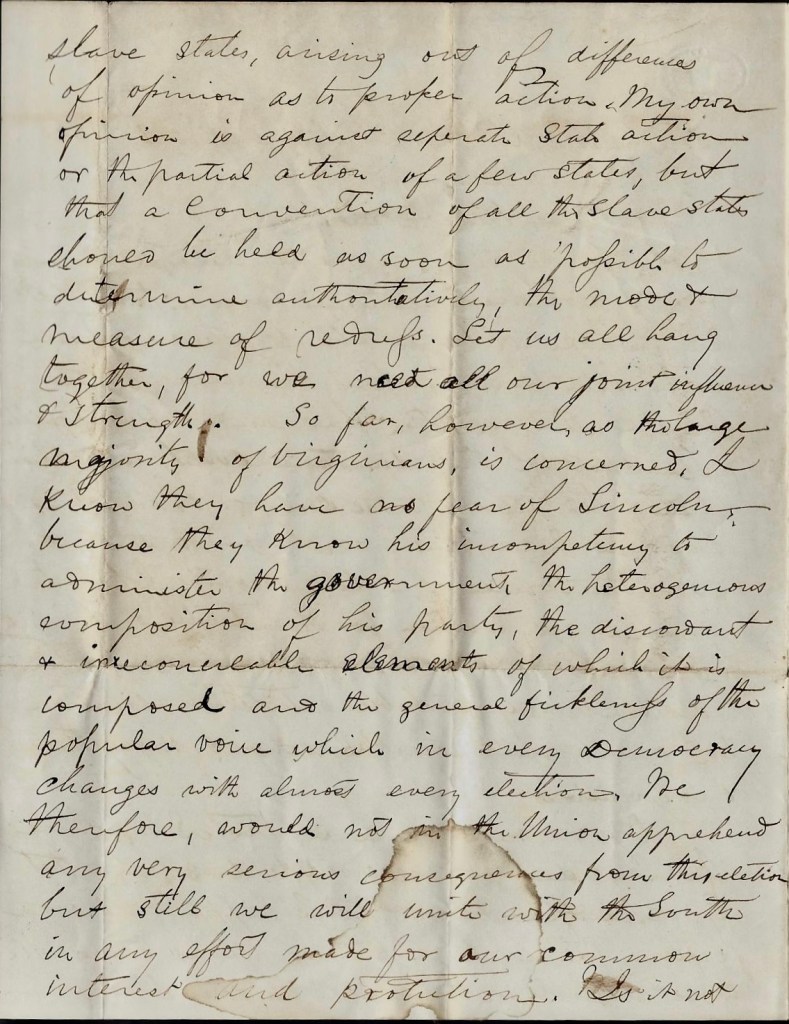 slave states, arising out of differences
of opinion as to proper action. My own
opinion is against seperate State action
or the partial action of a few States, but
that a Convention of all the Slave States
should be held as soon as possible to
determine authoritatively, the mode &
measure of redress. Let us all hang
together, for we need all our joint influence
& strength. So far, however, as the large
majority of Virginians, is concerned, I
know they have no fear of Lincoln,
because they know his incompetency to
administer the government, the heterogenious
composition of his party, the discordant
& irreconcilable elements of which it is
composed and the general fickleness of the
popular voice which in every Democracy
changes with almost every election. We
therefore, would not in the Union apprehend
any very serious consequences from this election
but still we will unite with the South
in any effort made for our common
interest and protection. Is it not